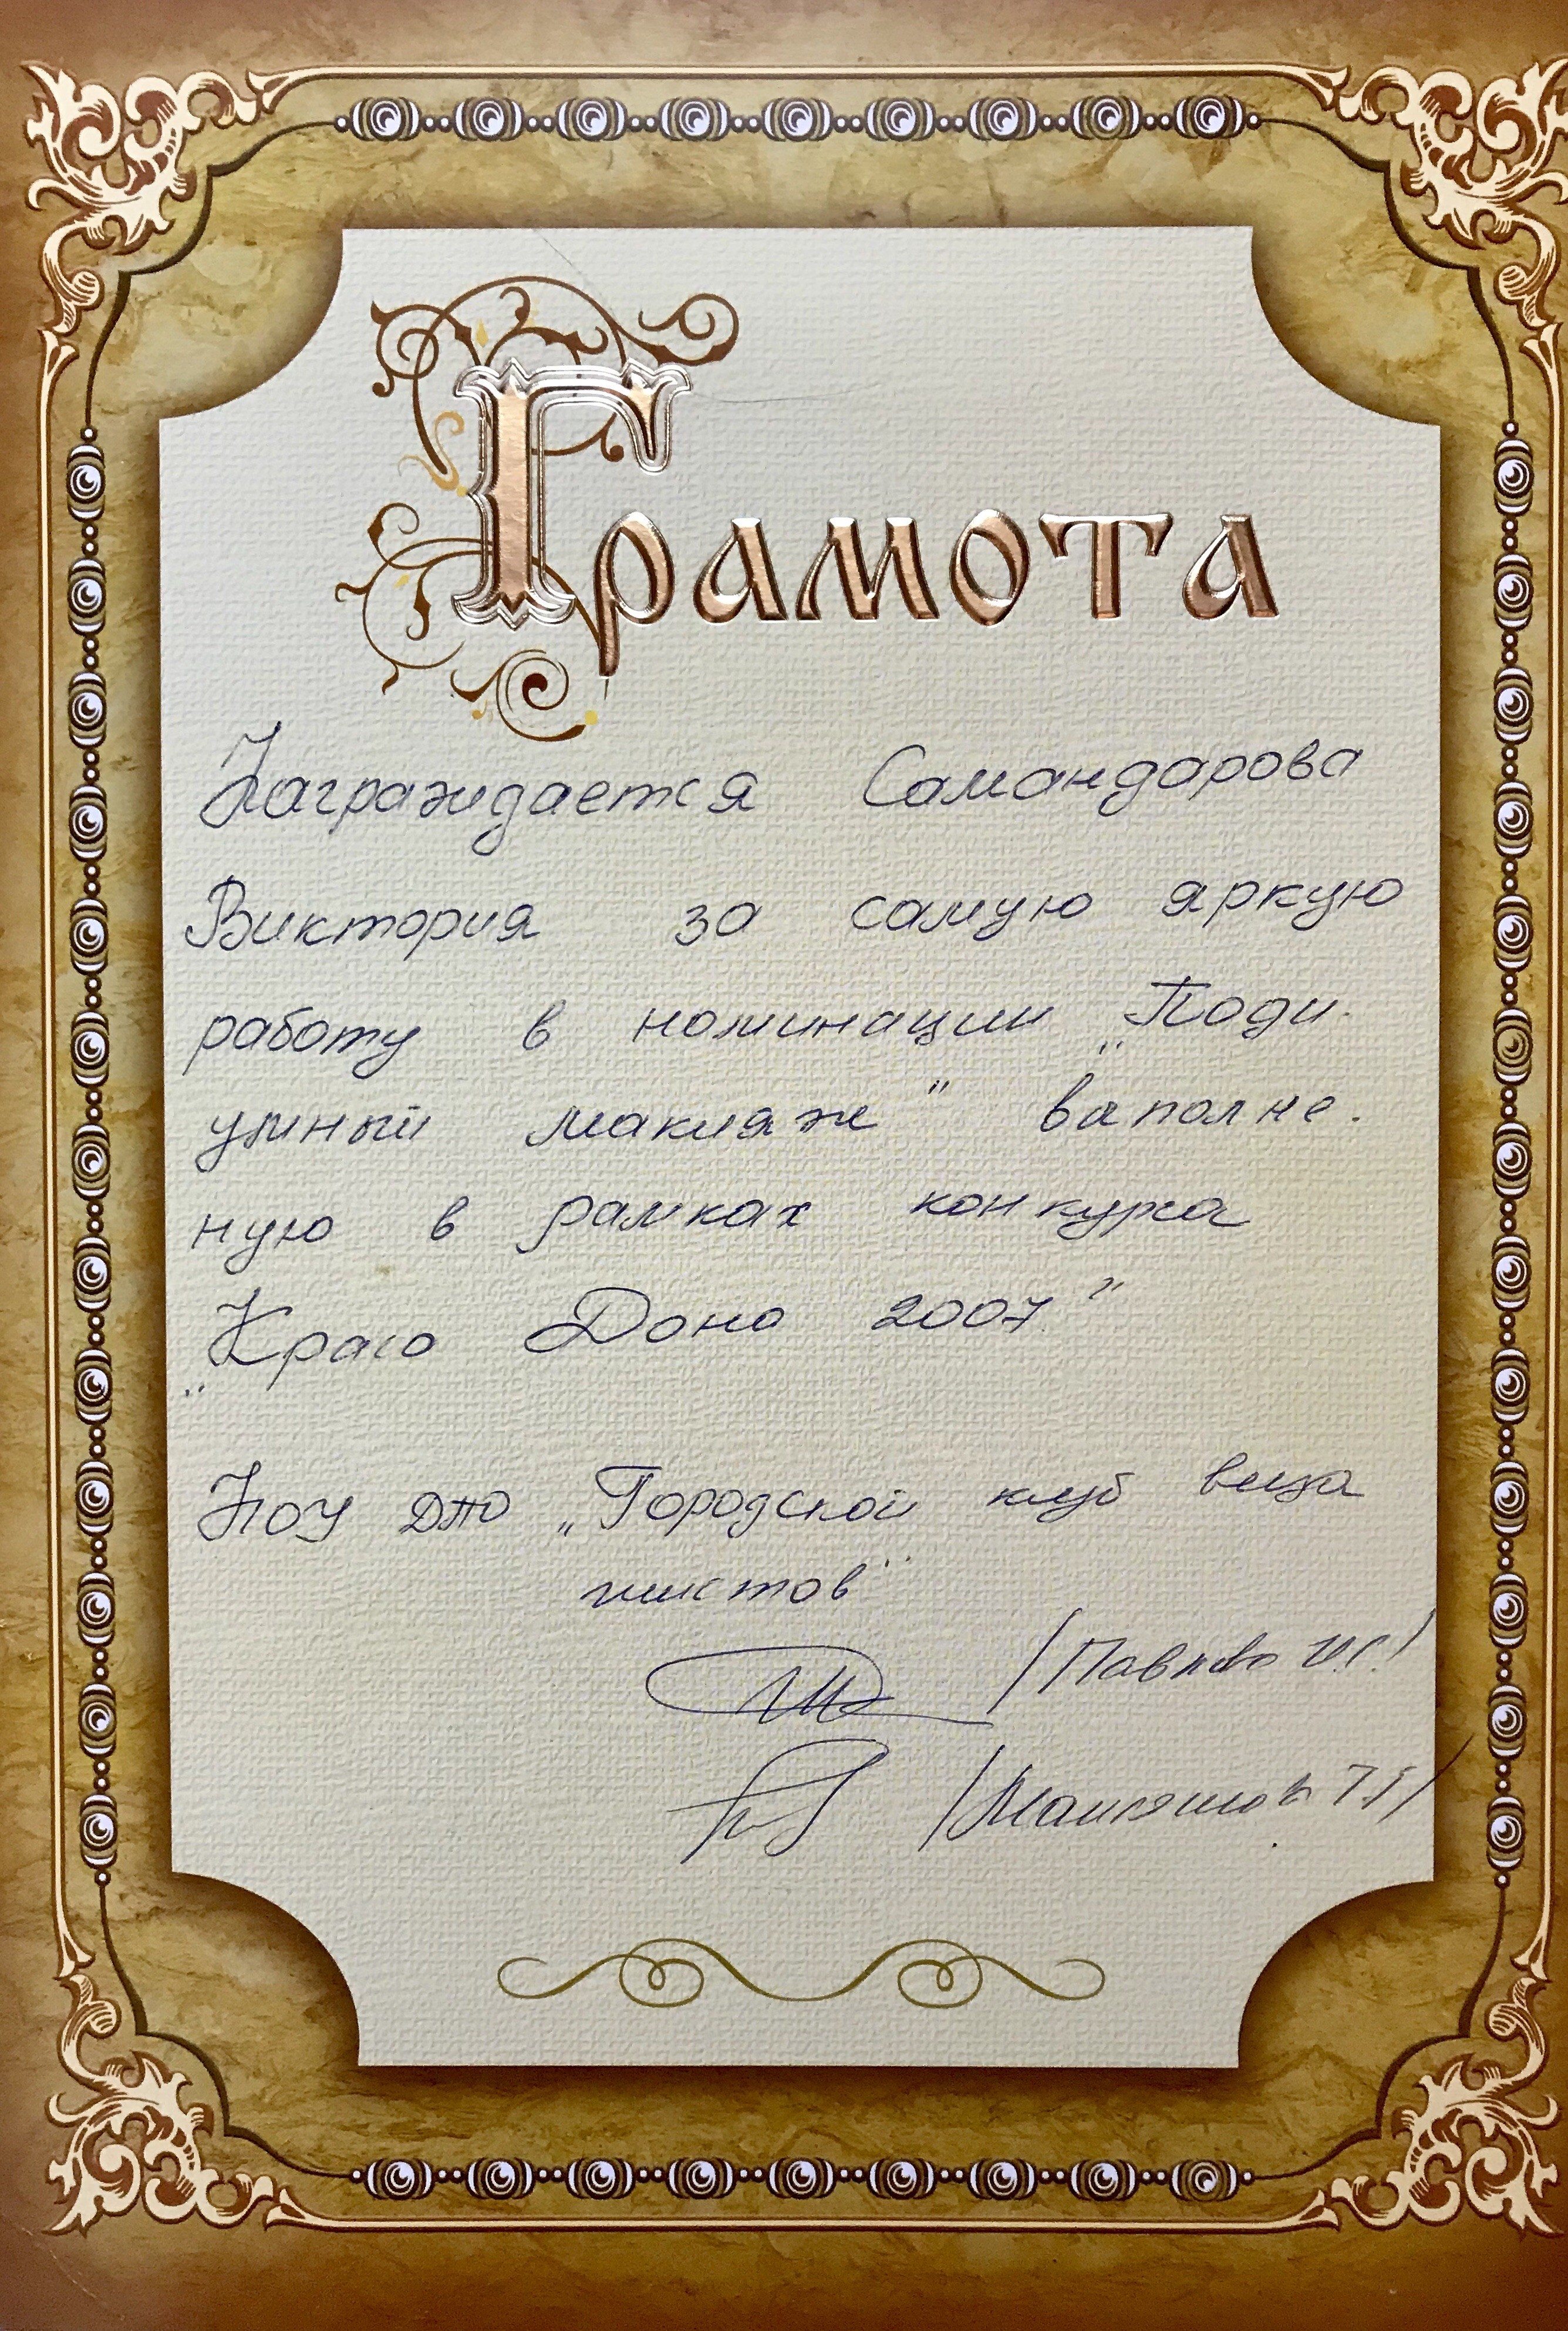 Грамота
Награждается Самандарова
Виктория за самую яркую
работу в номинации „Поди-
умный макияж" ваполне-
ную в рамках конкурса
„Краса Дона 2007"
НОУ ДПО „Городской клуб виза
жистов"
/Павлова И.С./